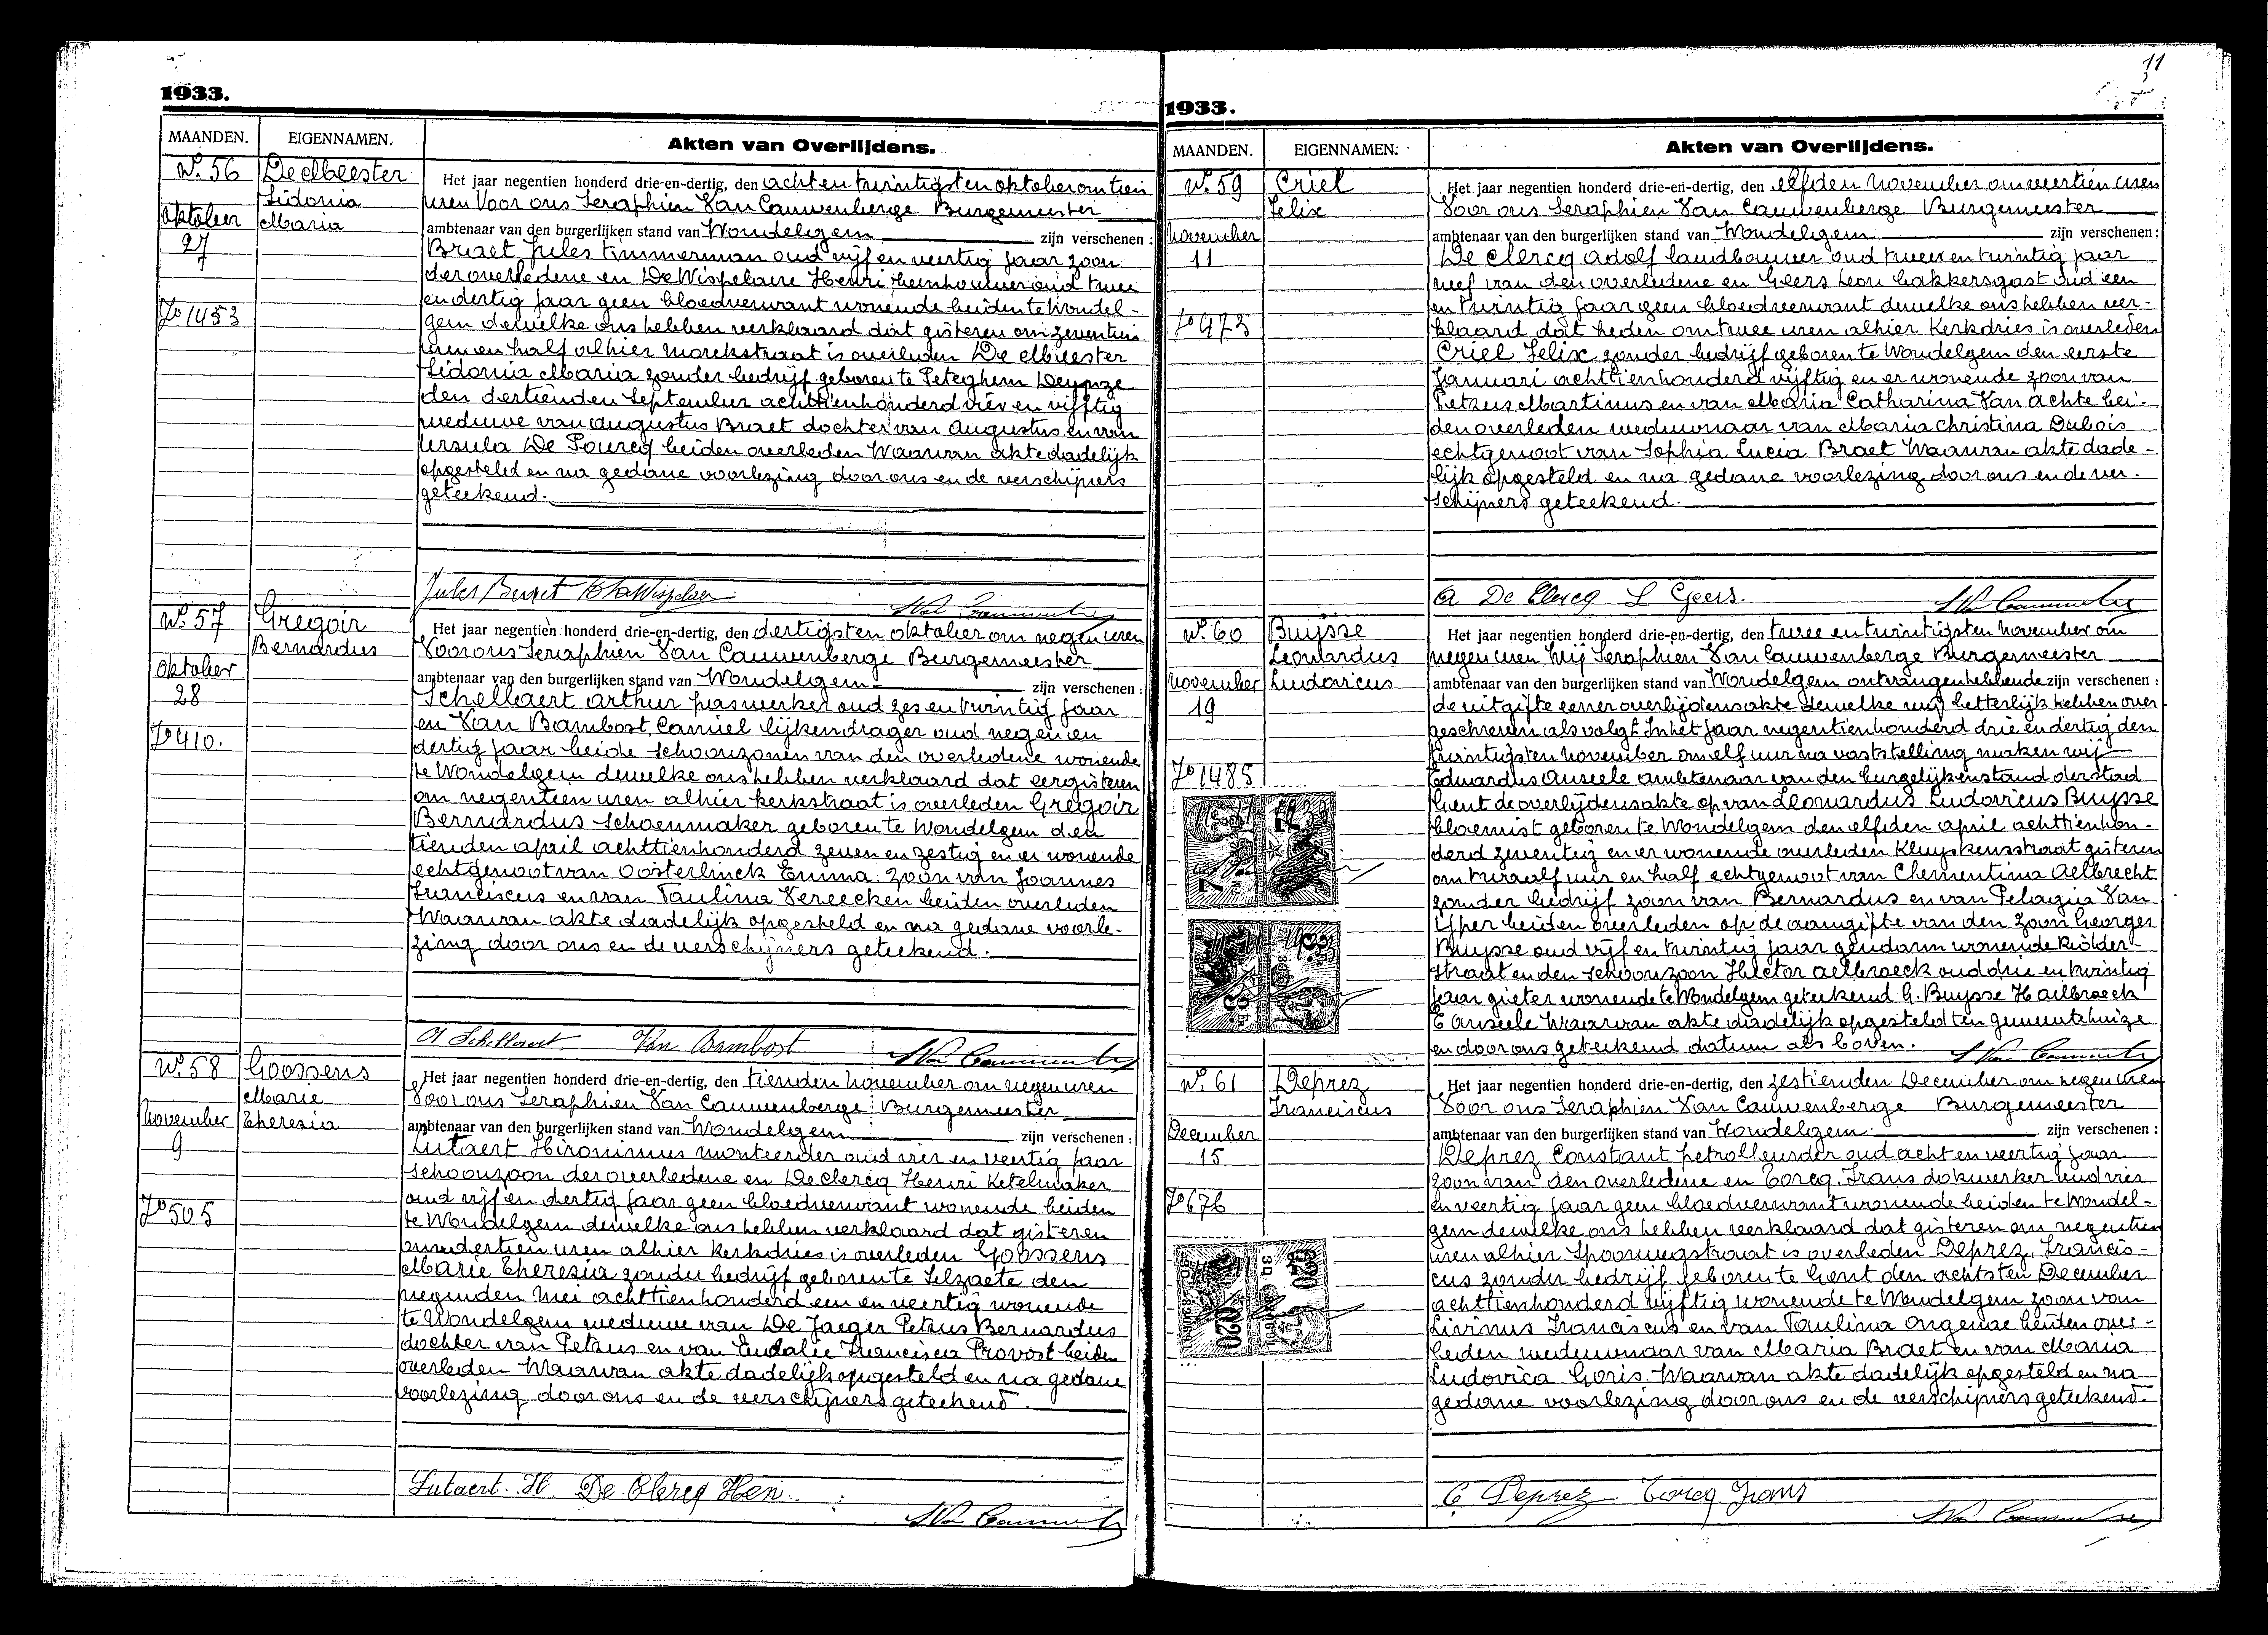 1933.
MAANDEN. EIGENNAMEN. Akten van Overlijdens.
No. 56 De Meester
Sidonia
Maria
Oktober
27
Fo 1453
Het jaar negentien honderd drie-en-dertig, den acht en twintigsten oktober om tien
uren Voor ons Seraphien Van Cauwenberge Burgemeester
ambtenaar van den burgerlijken stand van Wondelgem zijn verschenen :
Braet Jules timmerman oud vijf en veertig jaar zoon
der overledene en De Wispelaere Henri oud twee
en dertig jaar geen bloedverwant wonende beiden te Wondel-
gem dewelke ons hebben verklaard dat gisteren om zeventien
uren en half alhier Morekstraat is overleden De Meester
Sidonia Maria zonder bedrijf geboren te Peteghem Deynze
den dertienden September achttienhonderd vier en vijftig
weduwe van Augustus Braet dochter van Augustus en van
Ursula De Pourcq beiden overleden Waarvan akte dadelijk
opgesteld en na gedane voorlezing door ons en de verschijners
geteekend.
Jules Braet
No. 57 Gregoir
Bernardus
Oktober
28
Fo 410.
Het jaar negentien honderd drie-en-dertig, den dertigsten oktober om negen uren
Voor ons Seraphien Van Cauwenberge Burgemeester
ambtenaar van den burgerlijken stand van Wondelgem zijn verschenen :
Schellaert Arthur gaswerker oud zes en twintig jaar
en Van Bambost Camiel lijkendrager oud negen en
dertig jaar beide schoonzonen van den overledene wonende
te Wondelgem dewelke ons hebben verklaard dat eergisteren
om negentien uren alhier kerkstraat is overleden Gregoir
Bernardus Schoenmaker geboren te Wondelgem den
tienden april achttienhonderd zeven en zestig en er wonende
echtgenoot van Oosterlinck Emma zoon van Joannes
Franciscus en van Paulina Vereecken beiden overleden
Waarvan akte dadelijk opgesteld en na gedane voorle-
zing door ons en de verschijners geteekend.
A Schellaert Van Bambost
No. 58 Goossens
Marie
Theresia
November
9
Fo 505
Het jaar negentien honderd drie-en-dertig, den tienden November om negen uren
Voor ons Seraphien Van Cauwenberge Burgemeester
ambtenaar van den burgerlijken stand van Wondelgem zijn verschenen :
Lutaert Hironimus monteerder oud vier en veertig jaar
schoonzoon der overledene en De Clercq Henri Ketelmaker
oud vijf en dertig jaar geen bloedverwant wonende beiden
te Wondelgem dewelke ons hebben verklaard dat gisteren
om dertien uren alhier Kerkdries is overleden Goossens
Marie Theresia zonder bedrijf geboren te Selzaete den
negenden Mei achttienhonderd een en veertig wonende
te Wondelgem weduwe van De Jaeger Petrus Bernardus
dochter van Petrus en van Eudalie Francisca Provost beiden
overleden Waarvan akte dadelijk opgesteld en na gedane
voorlezing door ons en de verschijners geteekend
Lutaert H. De Clercq Hen
11
1933.
MAANDEN. EIGENNAMEN. Akten van Overlijdens.
No. 59 Criel
Felix
November
11
Fo 973
Het jaar negentien honderd drie-en-dertig, den elfden November om veertien uren
Voor ons Seraphien Van Cauwenberge Burgemeester
ambtenaar van den burgerlijken stand van Wondelgem zijn verschenen :
De Clercq Adolf landbouwer oud twee en twintig jaar
neef van den overledene en Geers Leon bakkersgast oud een
en twintig jaar geen bloedverwant dewelke ons hebben ver-
klaard dat heden om twee uren alhier Kerkdries is overleden
Criel Felix zonder bedrijf geboren te Wondelgem den eerste
Januari achttienhonderd vijftig en er wonende zoon van
Petrus Martinus en van Maria Catharina Van Achte bei-
den overleden weduwnaar van Maria Christina Dubois
echtgenoot van Sophia Lucia Braet Waarvan akte dade-
lijk opgesteld en na gedane voorlezing door ons en de ver-
schijners geteekend.
A De Clercq L Geers.
No. 60 Buijsse
Leonardus
Ludovicus
November
19
Fo 1485
Het jaar negentien honderd drie-en-dertig, den twee en twintigsten November om
negen uren Wij Seraphien Van Cauwenberge Burgemeester
ambtenaar van den burgerlijken stand van Wondelgem ontvangen hebbende zijn verschenen :
de uitgifte eener overlijdensakte dewelke wij letterlijk hebben over
geschreven als volgt In het jaar negentienhonderd drie en dertig den
twintigsten November om elf uur na vaststelling maken wij
Eduardus Anseele ambtenaar van den burgelijken stand der stad
Gent de overlijdensakte op van Leonardus Ludovicus Buijsse
bloemist geboren te Wondelgem den elfden april achttienhon-
derd zeventig en er wonende overleden Kluyskensstraat gisteren
om twaalf uur en half echtgenoot van Clementina Aelbrecht
zonder bedrijf zoon van Bernardus en van Pelagia Van
beiden overleden op de aangifte van den zoon Georges
Buijsse oud vijf en twintig jaar gendarm wonende
straat en den schoonzoon Hector Aelbroeck oud drie en twintig
jaar gieter wonende te Wondelgem geteekend G. Buijsse H Aelbroeck
E Anseele Waarvan akte dadelijk opgesteld ten gemeentehuize
en door ons geteekend datum als boven.
No. 61 Deprez
Franciscus
December
15
Fo 676
Het jaar negentien honderd drie-en-dertig, den zestienden December om negen uren
Voor ons Seraphien Van Cauwenberge Burgemeester
ambtenaar van den burgerlijken stand van Wondelgem zijn verschenen :
Deprez Constant oud acht en veertig jaar
zoon van den overledene en Torcq Frans dokwerker oud vier
en veertig jaar geen bloedverwant wonende beiden te Wondel-
gem dewelke ons hebben verklaard dat gisteren om negentien
uren alhier Spoorwegstraat is overleden Deprez Francis-
cus zonder bedrijf geboren te Gent den achtsten December
achttienhonderd vijftig wonende te Wondelgem zoon van
Livinus Franciscus en van Paulina Ongenae beiden over-
leden weduwnaar van Maria Braet en van Maria
Ludovica Goris. Waarvan akte dadelijk opgesteld en na
gedane voorlezing door ons en de verschijners geteekend.
C Deprez Torcq Frans